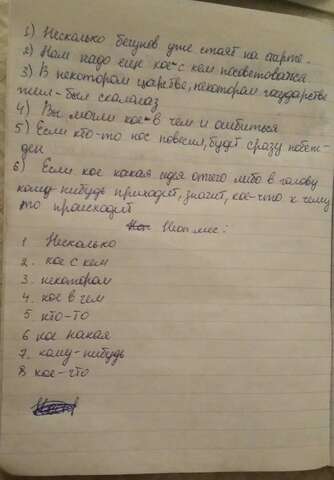 1) Несколько бегунов уже стоят на старте.
2) Нам надо еще кое с кем посоветоваться
3) В некотором царстве, некотором государстве
жил-был скалолаз
4) Вы могли кое в чем и ошибиться
5) Если кто-то нос повесил, будет сразу побеж-
ден
6) Если кое какая идея отчего либо в голову
кому-нибудь приходит, значит, кое-что к чему
то происходит
Неоп мес:
1 Несколько
2. кое с кем
3. некотором
4. кое в чем
5 кто-то
6 кое какая
7. кому-нибудь
8 кое-что